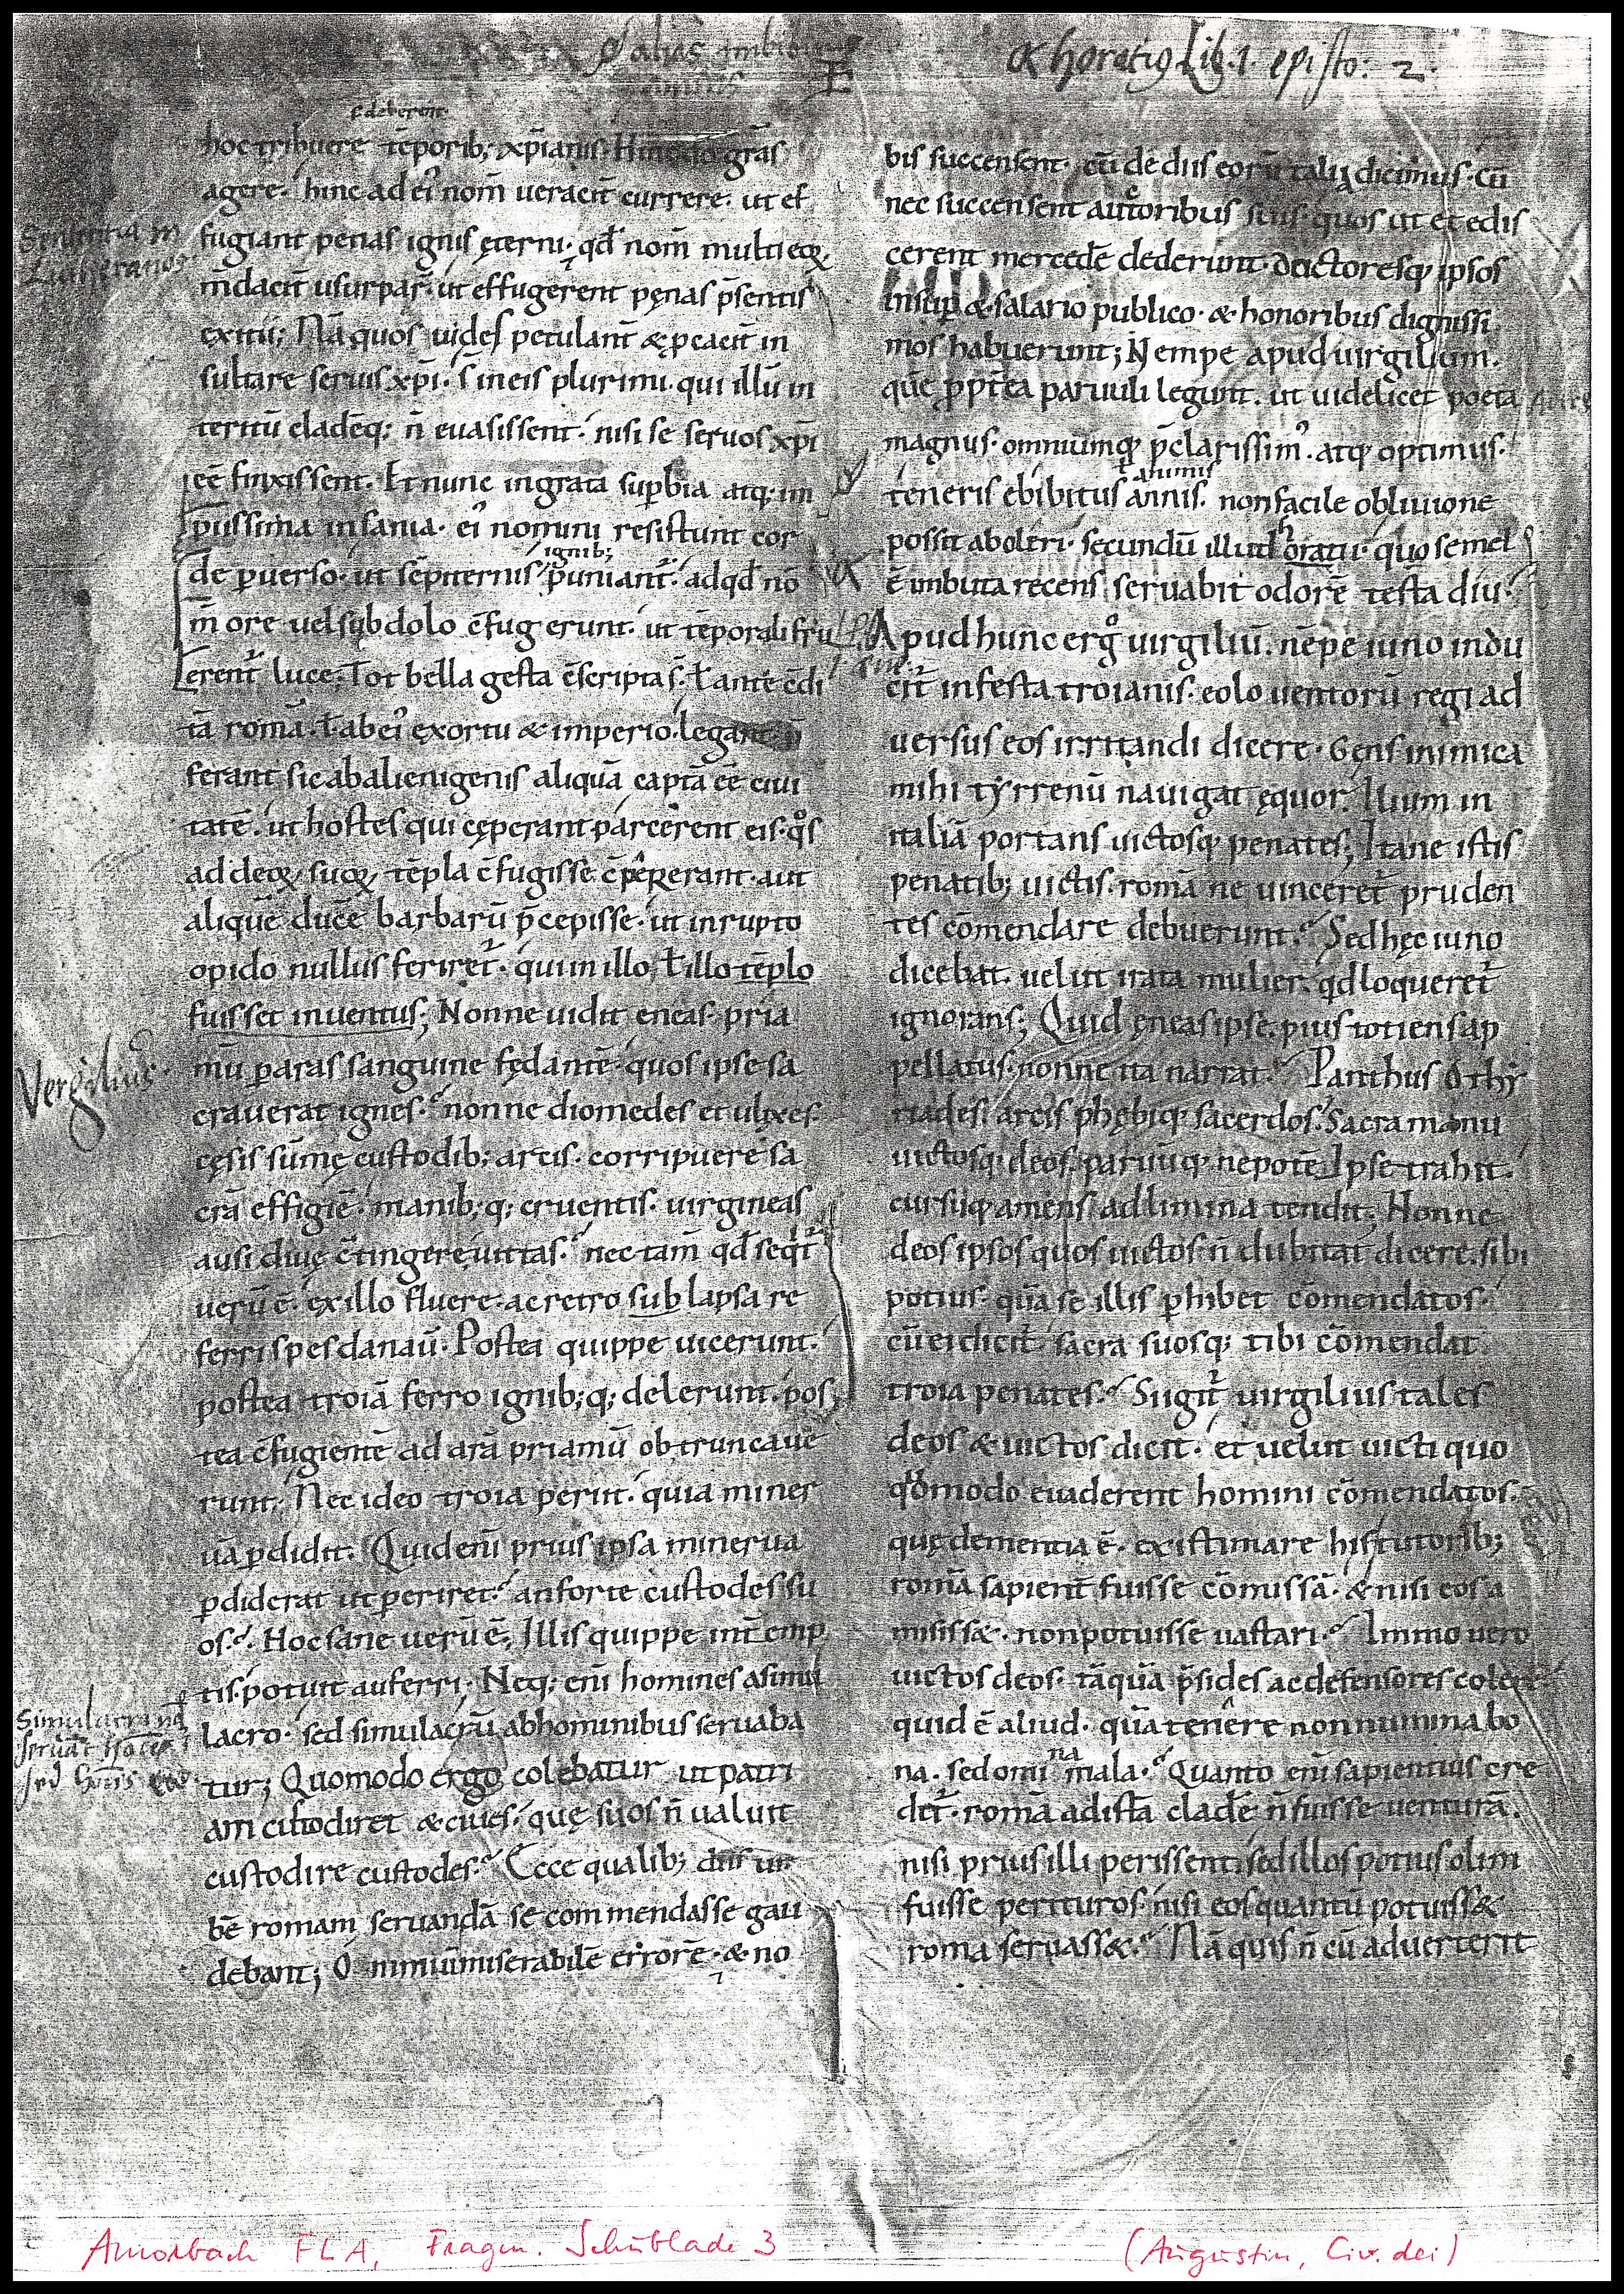 ꝙ alias imbibi
α horatiꝰ Lib. 1. episto: 2.
& deberent
hoc tribuere tēporib; xp̄ianis. Hinc dō grās
agere. hinc ad eiꝰ nom̄ ueracit̄ currere. ut ef
fugiant penas ignis ęterni. qd̄ nom̄ multi eoꝝ
m̄dacit̄ usurpaȓ. ut effugerent pęnas p̄sentis
exitii; Nā quos uides petulant̄ & p̱cacit̄ in
sultare seruis xp̄i. s̄ in eis plurimi. qui illū in
teritū cladēq; n̄ euasissent. nisi se seruos xp̄i
eē finxissent. Et nunc ingrata suꝑbia atq; im
piissima insania. eiꝰ nomini resistunt cor
ignib;
de ꝑuerso. ut sēpiternis puniant᷑. ad qd̄ no
m̄ ore uel subdolo c̄fugerunt. ut tēporali fru
erent᷑ luce; Tot bella gesta c̄scripta s̄. ł ante c̄di
tā romā. ł ab eiꝰ exortu & imperio. legant. p̄
ferant sic ab alienigenis aliquā captā eē ciui
tatē. ut hostes qui cęperant parcerent eis. qͦs
ad deoꝝ suoꝝ tēpla c̄fugisse c̄perrerant. aut
aliquē ducē barbarū p̄cepisse. ut inrupto
opido nullus feriret᷑. qui in illo, ł illo tēplo
fuisset inuentus; Nonne uidit eneas. pria
mū ꝑ aras sanguine fędantē quos ipse sa
crauerat ignes. nonne diomedes et ulixes
cęsis sūmę custodib; arcis. corripuere sa
crā effigiē. manib; q; cruentis. uirgineas
ausi diuę c̄tingere uittas. nec tam̄ qd̄ seqt᷑
uerū ē. ex illo fluere. ac retro sublapsa re
ferri spes danaū. Postea quippe uicerunt.
postea troiā ferro ignib; q; delerunt. pos
tea c̄fugientē ad arā priamū obtruncaue
runt; Nec ideo troia periit. quia miner
uā ꝑdidit. Quid eni̅ prius ipsa minerua
ꝑdiderat ut periret. an forte custodes su
os. Hoc sane uerū ē; Illis quippe int̄emp
tis. potuit auferri. Neq; eni̅ homines a simu
lacro. sed simulacrū ab hominibus seruaba
tur; Quomodo ergo colebatur ut patri
am custodiret & ciues. quę suos n̄ ualuit
custodire custodes. Ecce qualib; diis ur
bē romam seruandā se commendasse gau
debant; O nimiū miserabilē errorē. & no
Vergilius
Simulacra nō
bis succensent. cū de diis eorū talia dicimus. cū
nec succensent auctoribus suis. quos ut et edis
cerent mercedē dederunt. doctoresq; ipsos
insuꝑ & salario publico. & honoribus dignissi
mos habuerunt; Nempe apud uirgilium.
quē ꝓpt̄ea paruuli legunt. ut uidelicet poeta
magnus. omniūmq; p̄clarissimꝰ. atq; optimus.
animis
teneris ebibitus annis. non facile obliuione
h
possit aboleri. secundū illud oratii. quo semel
ē imbuta recens seruabit odorē testa diu.
Apud hunc ergͦ uirgiliū. nēpe iuno indu
cit᷑ infesta troianis. eolo uentorū regi ad
uersus eos irritandi dicere. Gens inimica
mihi tyrrenū nauigat ęquor. Ilium in
italiā portans uictosq; penates; Itane istis
penatib; uictis. romā ne uinceret᷑ pruden
tes cōmendare debuerunt. Sed hęc iuno
dicebat. uelut irata mulier. qd loqueret᷑
ignorans; Quid ęneas ipse. pius totiens ap
pellatus. nonne ita narrat. Panthus othry
riades. arcis phębiq; sacerdos. Sacra manu
uictosq; deos. paruūq; nepotē Ipse trahit.
cursuq; amens ad limina tendit; Nonne
deos ipsos quos uictos n̄ dubitat dicere. sibi
potius. quā se illis ꝑhibet cōmendatos.
cū ei dicit᷑ sacra suosq; tibi cōmendat
troia penates. Si igit᷑ uirgilius tales
deos & uictos dicit. et uelut uicti quo
qͦmodo euaderent homini cōmendatos.
quę dementia ē. existimare his tutorib;
romā sapient̄ fuisse cōmissā. & nisi eos a
misiss&. non potuisse uastari. Immo uero
uictos deos. tāquā p̄sides ac defensores colere
quid ē aliud. quā tenere non numina bo
na
na. sed omi mala. Quanto eni̅ sapientius cre
det᷑. romā ad istā cladē n̄ fuisse uenturā.
nisi prius illi perissent. sed illos potius olim
fuisse perituros. nisi eos quantū potuiss&
roma seruass&. Nā quis n̄ cū aduerterit
Amorbach FLA, Fragm. Schublade 3
(Augustin, Civ. dei)